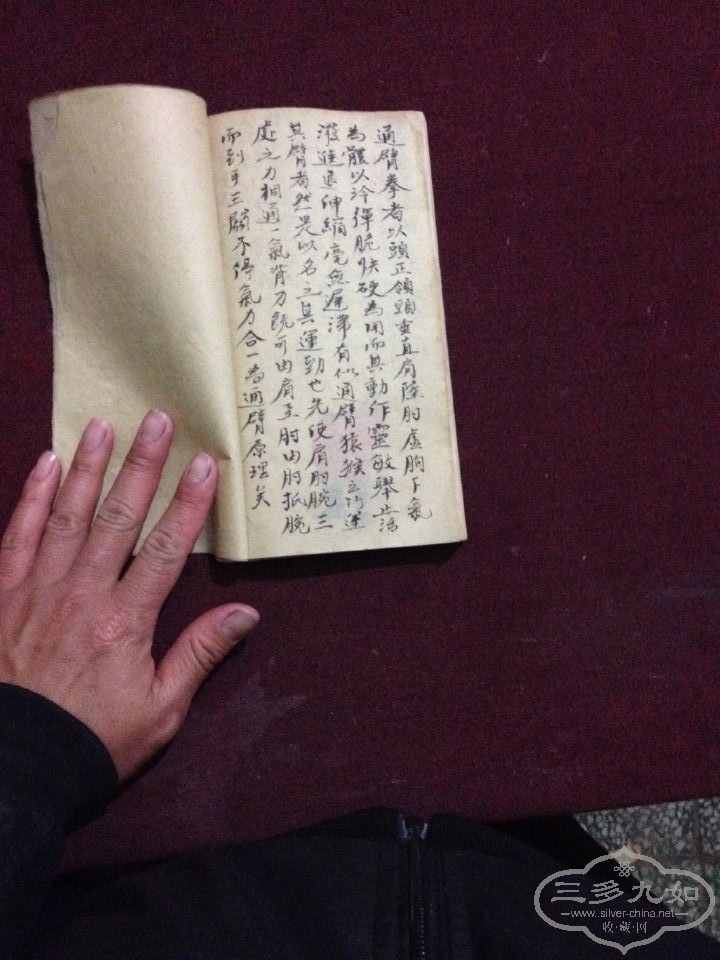 通臂拳者以頭正領頸垂直肩陸肘虛胸下氣
為體以冷彈脆快硬為用而其動作靈敏舉止活
潑進退伸縮毫無遲滯有似通臂猿猴之巧運
其臂者然是以名之其運勁也先使肩肘腕三
處之力相通一氣背力既可由肩至肘由肘抵腕
而到手三關不停氣力合一為通臂原理矣
三多九如
www.silver-china.net
收·藏·网